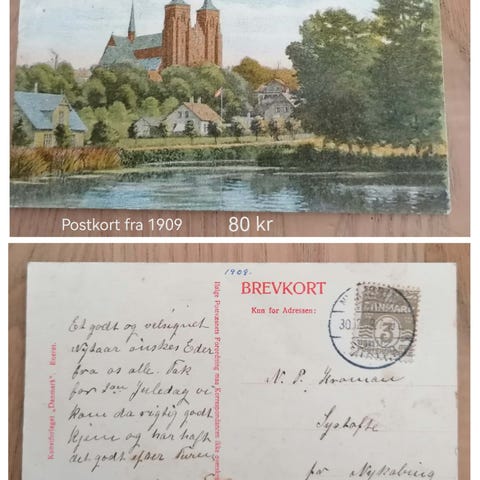 Postkort fra 1909
80 kr
1909.
BREVKORT
Kun for Adressen:
DANMARK
3
30.12
Kunstforlaget „Danmark". Eneret.
Postvæsenets Forordning maa Korrespondancen ikke
Et godt og velsignet
Nytaar ønskes Eder
fra os alle. Tak
for Juledag vi
kom da rigtig godt
hjem og har haft
det godt efter Turen
N. P. Kroman
Systofte
Nykøbing